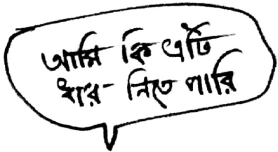 আমি কি এটি
ধার নিতে পারি